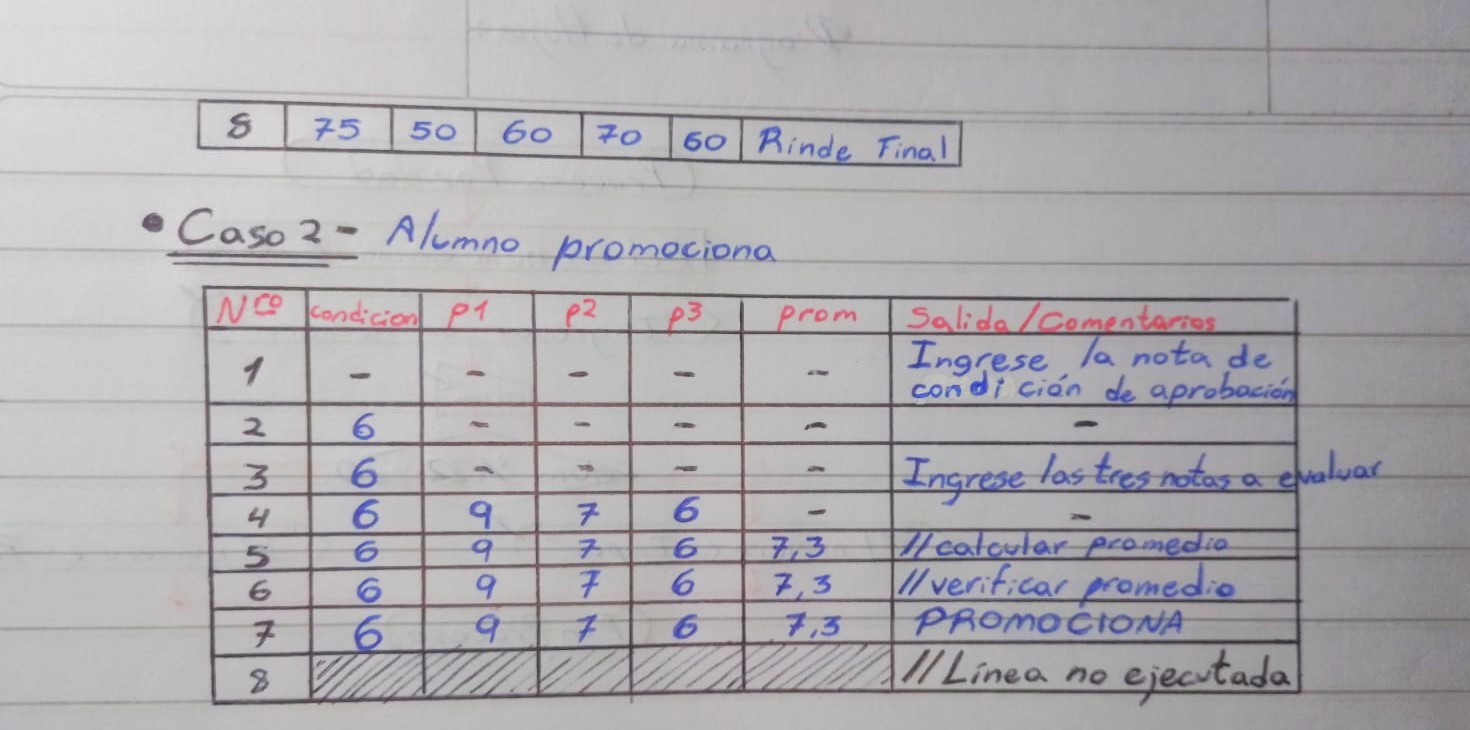 8 75 50 60 70 60 Rinde Final
• Caso 2 - Alumno promociona
Nro condicion P1 P2 P3 prom Salida/Comentarios
1 - - - - - Ingrese la nota de
condición de aprobación
2 6 - - - - -
3 6 - - - - Ingrese las tres notas a evaluar
4 6 9 7 6 - -
5 6 9 7 6 7,3 //calcular promedio
6 6 9 7 6 7,3 //verificar promedio
7 6 9 7 6 7,3 PROMOCIONA
8 //Línea no ejecutada